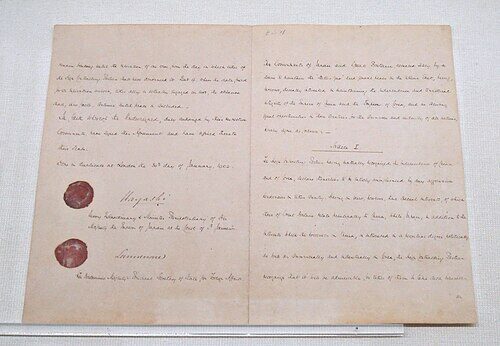 remain binding until the expiration of one year from the day on which either of
the High Contracting Parties shall have denounced it. But if, when the date fixed
for its expiration arrives, either ally is actually engaged in war, the alliance
shall, ipso facto, continue until peace is concluded.
In faith whereof the Undersigned, duly authorized by their respective
Governments, have signed this Agreement and have affixed thereto
their Seals.
Done in duplicate at London the 30th day of January, 1902.
Hayashi
Envoy Extraordinary & Minister Plenipotentiary of His
Majesty the Emperor of Japan at the Court of St. James's
Lansdowne
His Britannic Majesty's Principal Secretary of State for Foreign Affairs.
The Governments of Japan and Great Britain, actuated solely by a
desire to maintain the status quo and general peace in the extreme East, being,
moreover, specially interested in maintaining the independence and territorial
integrity of the Empire of China and the Empire of Corea, and in securing
equal opportunities in those Countries for the commerce and industry of all nations,
hereby agree as follows:—
Article I.
The High Contracting Parties, having mutually recognized the independence of China
and of Corea, declare themselves to be entirely uninfluenced by any aggressive
tendencies in either country. Having in view, however, their special interests of which
those of Great Britain relate principally to China, while Japan, in addition to the
interests which she possesses in China, is interested in a peculiar degree politically
as well as commercially and industrially in Corea, the High Contracting Parties
recognize that it will be admissible for either of them to take such measures